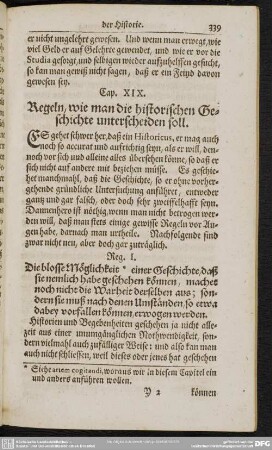 der Historie. 339
er nicht ungelehrt gewesen. Und wenn man erweget, wie
viel Geld er auf Gelehrte gewendet, und wie er vor die
Studia gesorgt, und selbigen wieder aufzuhelffen gesucht,
so kan man gewiß nicht sagen, daß er ein Feind davon
gewesen sey.
Cap. XIX.
Regeln, wie man die historischen Ge-
schichte unterscheiden soll.
ES gehet schwer her, daß ein Historicus, er mag auch
noch so accurat und aufrichtig seyn, als er will, den-
noch vor sich und alleine alles übersehen könne, so daß er
sich nicht auf andere mit beziehen müsse. Es geschie-
het manchmahl, daß die Geschichte, so er ohne vorher-
gehende gründliche Untersuchung anführet, entweder
gantz und gar falsch, oder doch sehr zweiffelhafft seyn.
Dannenhero ist nöthig, wenn man nicht betrogen wer-
den will, daß man stets einige gewisse Regeln vor Au-
gen habe, darnach man urtheile. Nachfolgende sind
zwar nicht neu, aber doch gar zuträglich.
Reg. I.
Die blosse Möglichkeit * einer Geschichte, daß
sie nemlich habe geschehen können, machet
noch nicht die Warheit derselben aus; son-
dern sie muß nach denen Umständen, so etwa
dabey vorfallen können, erwogen werden.
Historien und Begebenheiten geschehen ja nicht alle-
zeit aus einer unumgänglichen Nothwendigkeit, son-
dern vielmahl auch zufälliger Weise: und also kan man
auch nicht schliessen, weil dieses oder jenes hat geschehen
* Siehe artem cogitandi, woraus wir in diesem Capitel ein
und anders anführen wollen.
Y 2 können